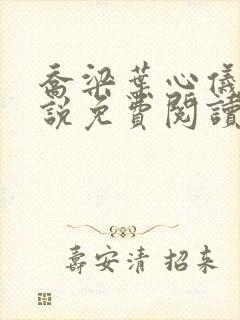 喬梁葉心儀
說免費閱讀
壽安清 招来